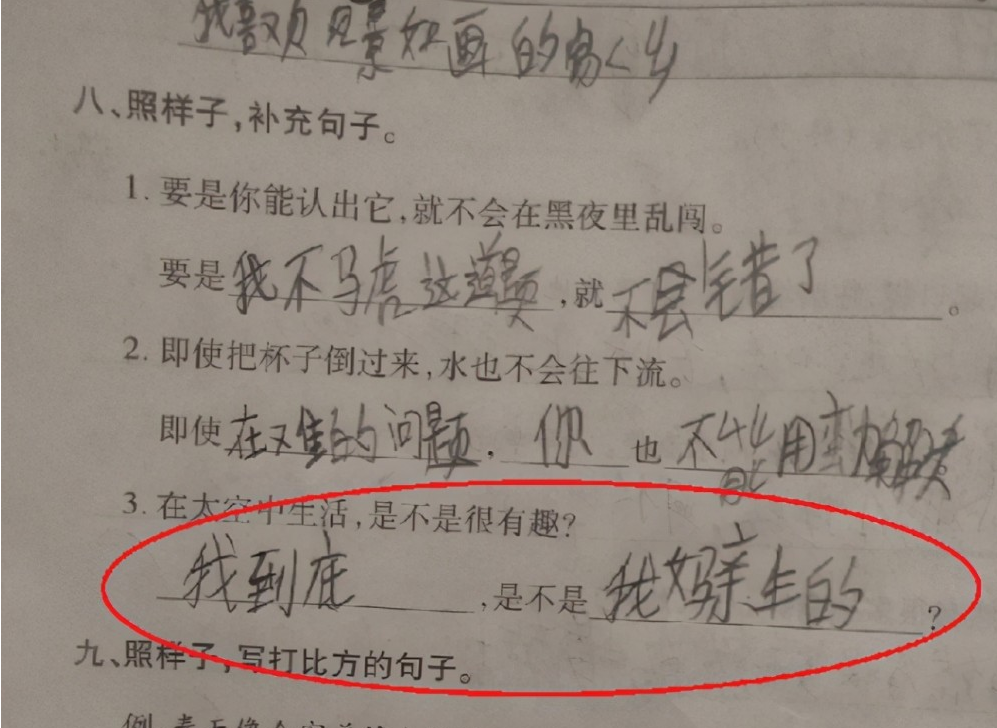 我喜欢风景如画的家乡
八、照样子,补充句子。
1. 要是你能认出它,就不会在黑夜里乱闯。
要是我不马虎这道题,就不会错了。
2. 即使把杯子倒过来,水也不会往下流。
即使在难的问题,你也不能用蛮力解决
3. 在太空中生活,是不是很有趣?
我到底,是不是我妈亲生的?
九、照样子,写打比方的句子。